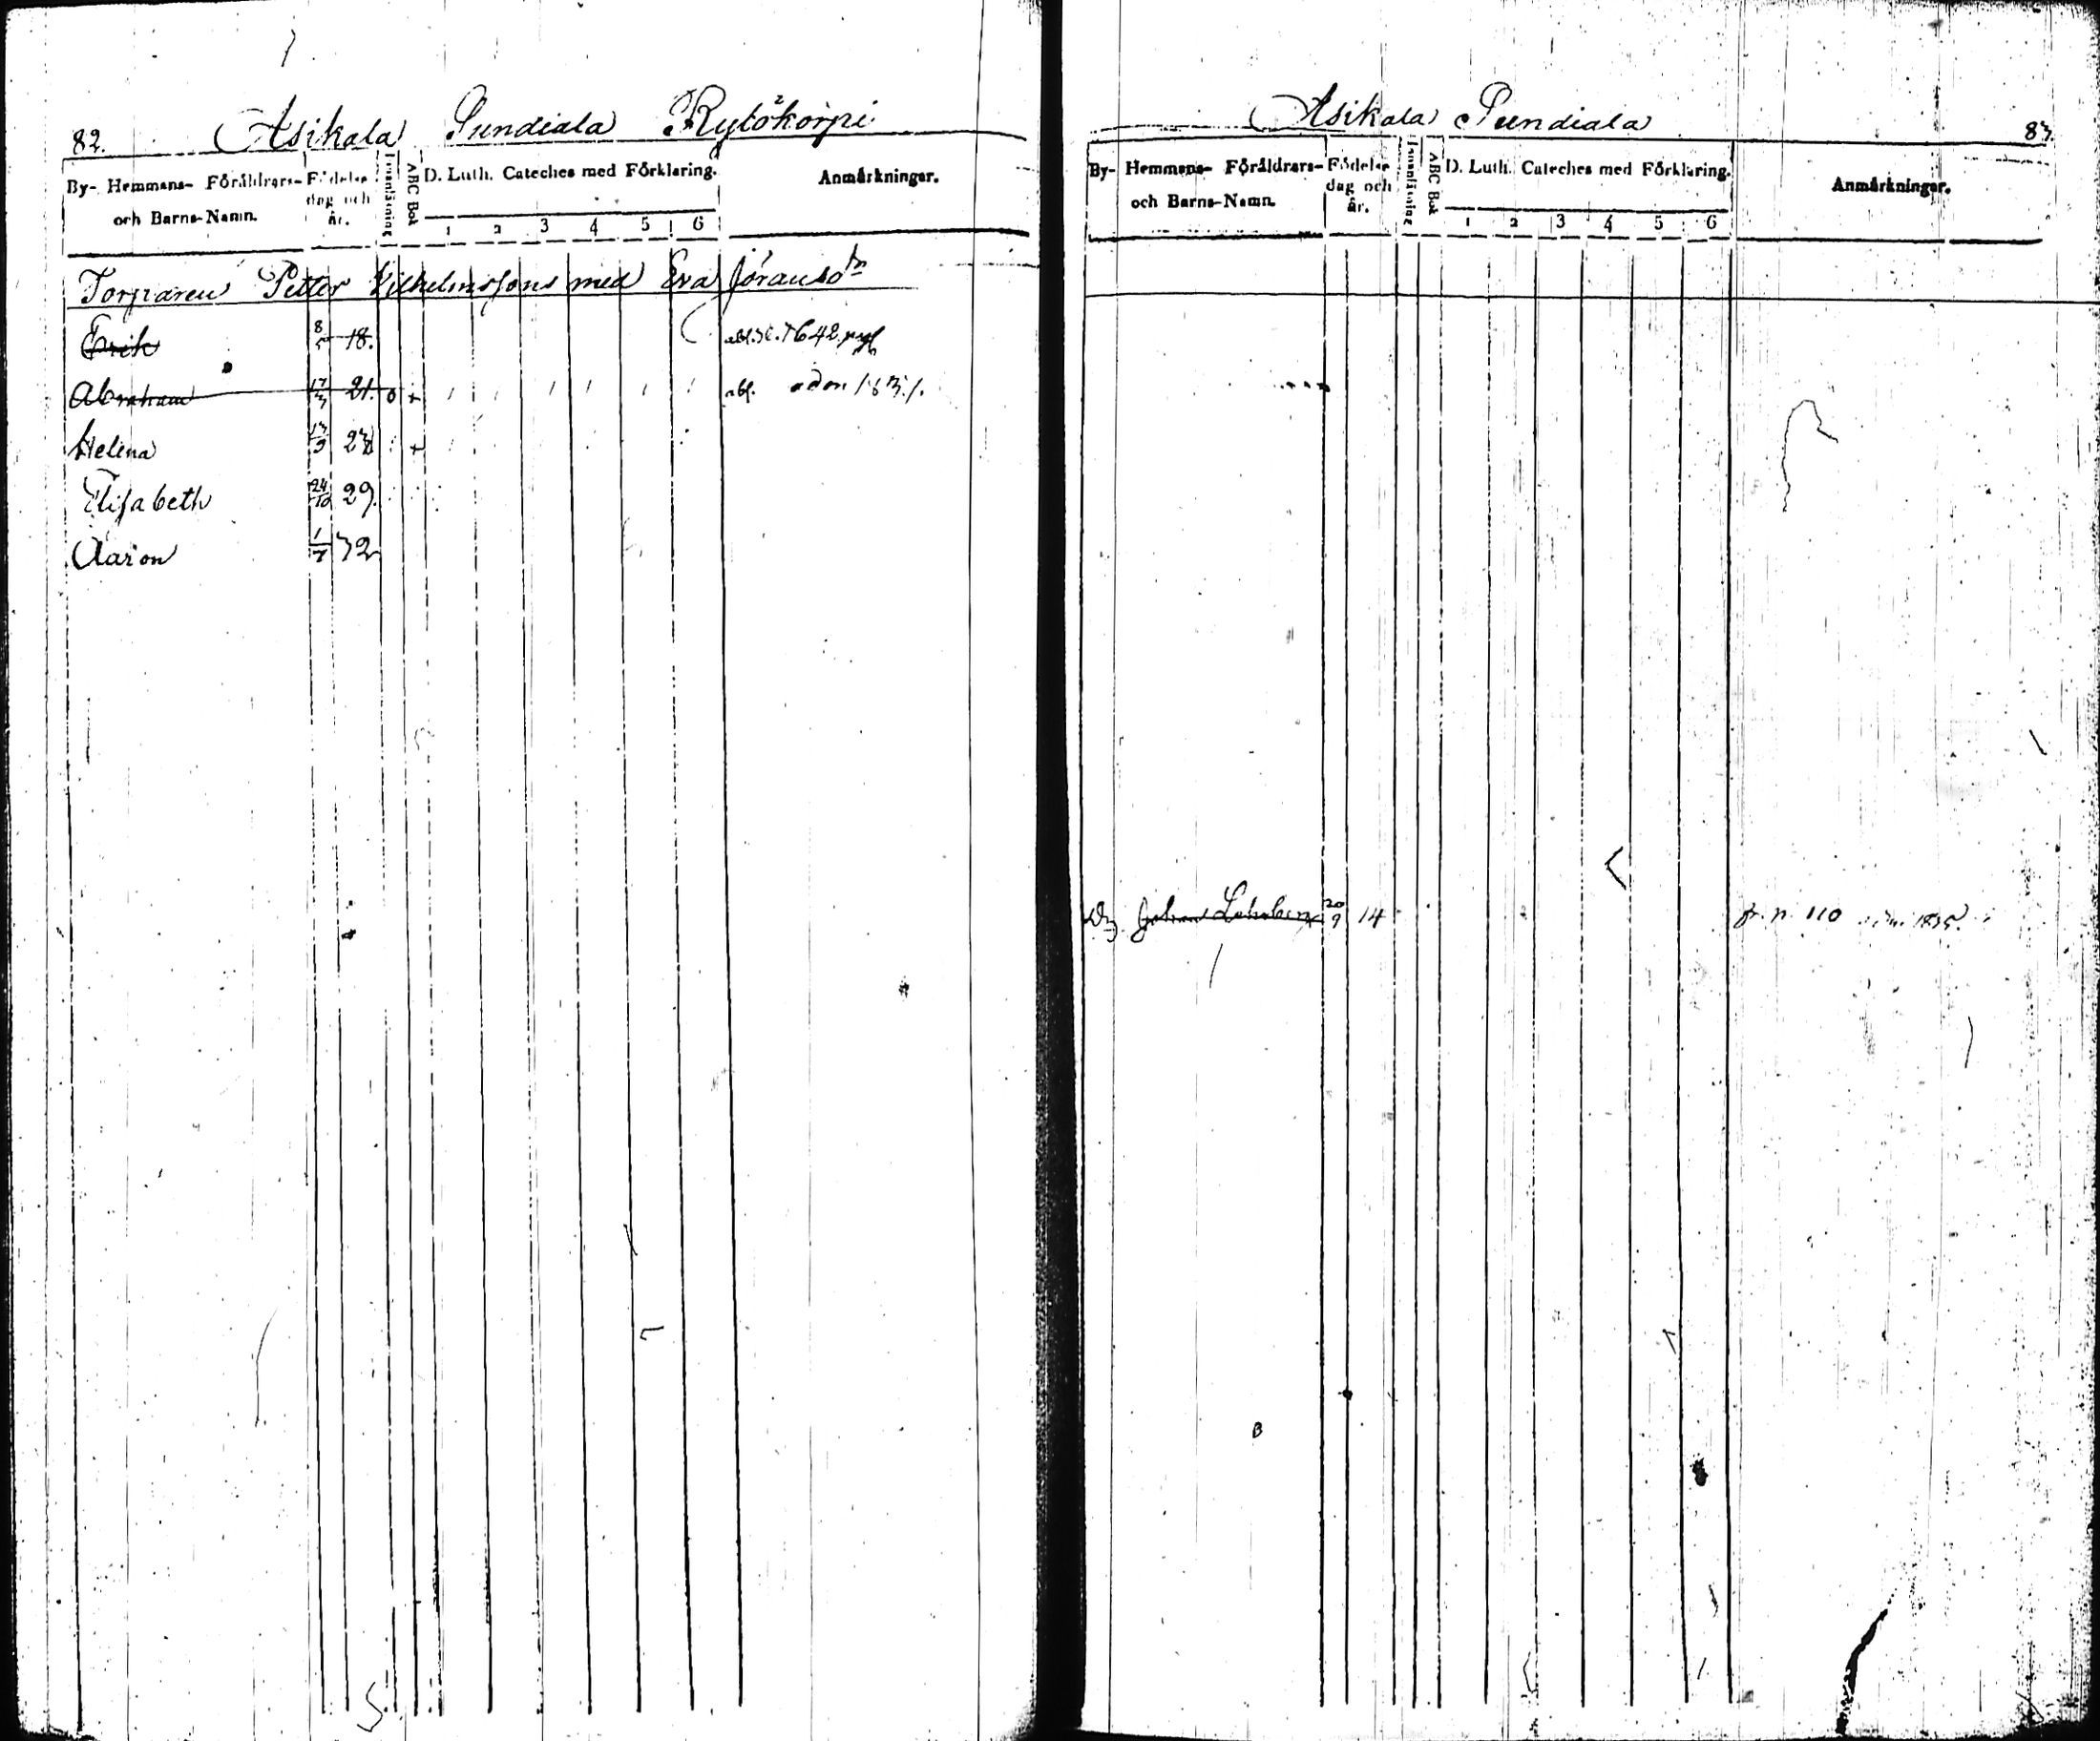 82. Asikala Pundiala Rytökorpi
By- Hemmans- Föräldrars- och Barns-Namn. Födelse dag och år. Innanläsning ABC Bok D. Luth. Cateches med Förklaring. 1 2 3 4 5 6 Anmärkningar.
Torparen Petter Vilhelmssons med Eva Jöransdr
Erik 8/5 18.
Abraham 17/3 21. 0 +
Helena 13/9 23 +
Elisabeth 24/10 29.
Aaron 1/7 32
Asikala Pundiala 83.
By- Hemmans- Föräldrars- och Barns-Namn. Födelse dag och år. Innanläsning ABC Bok D. Luth. Cateches med Förklaring. 1 2 3 4 5 6 Anmärkningar.
Johan 20/9 14 fr. n. 110